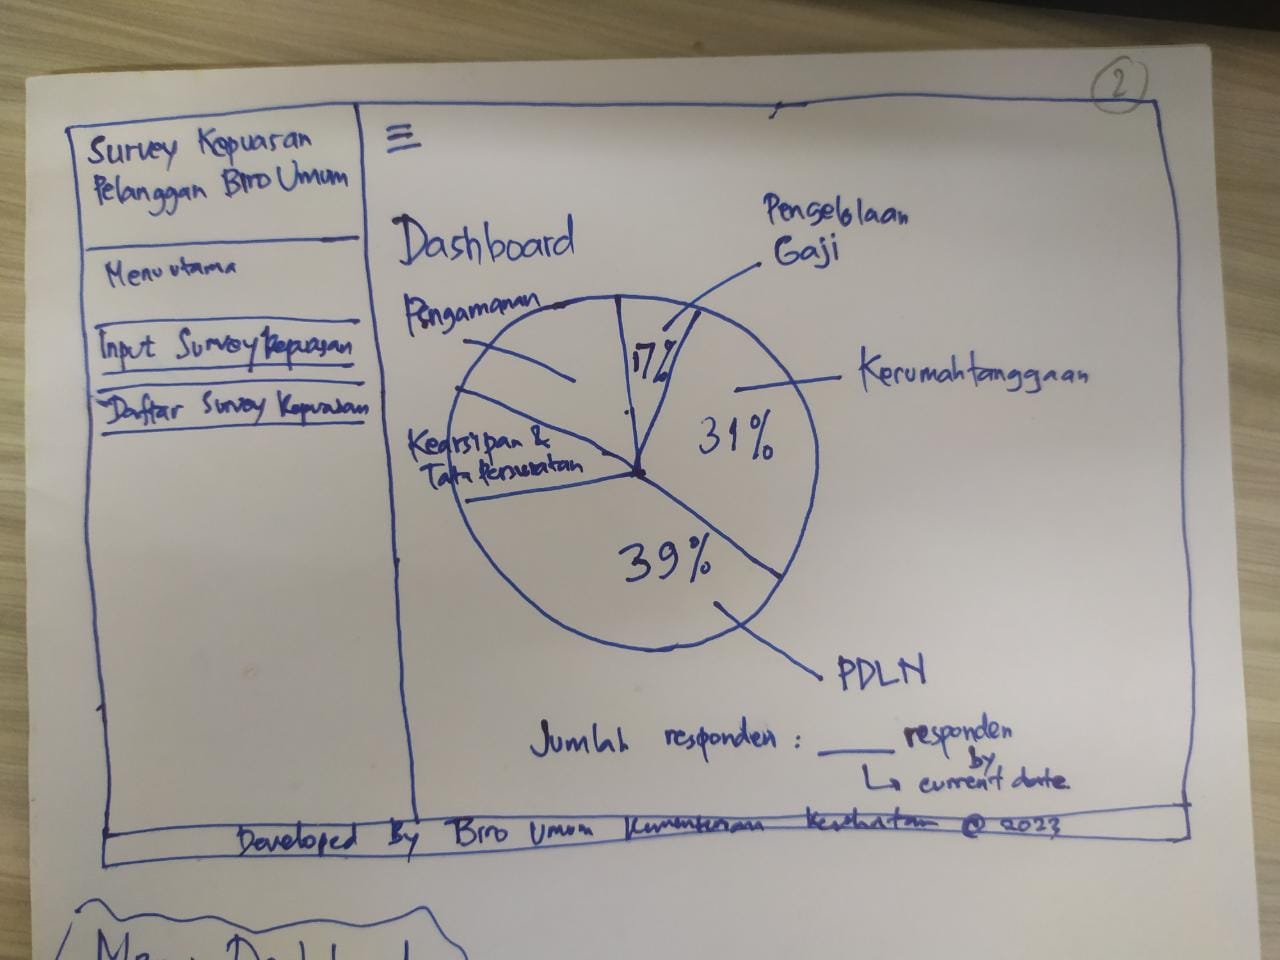 2
Survey Kepuasan
Pelanggan Biro Umum
Menu utama
Input Survey Kepuasan
Daftar Survey Kepuasan
Dashboard
Pengelolaan
Gaji
Pengamanan
17%
Kerumahtanggaan
31%
Kearsipan &
Tata Persuratan
39%
PDLN
Jumlah responden : ____ responden
by
↳ current date
Developed By Biro Umum Kementerian Kesehatan @ 2023